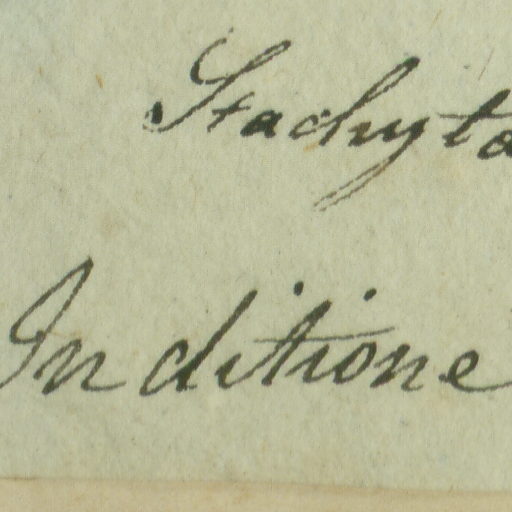 Stachyta
In ditione